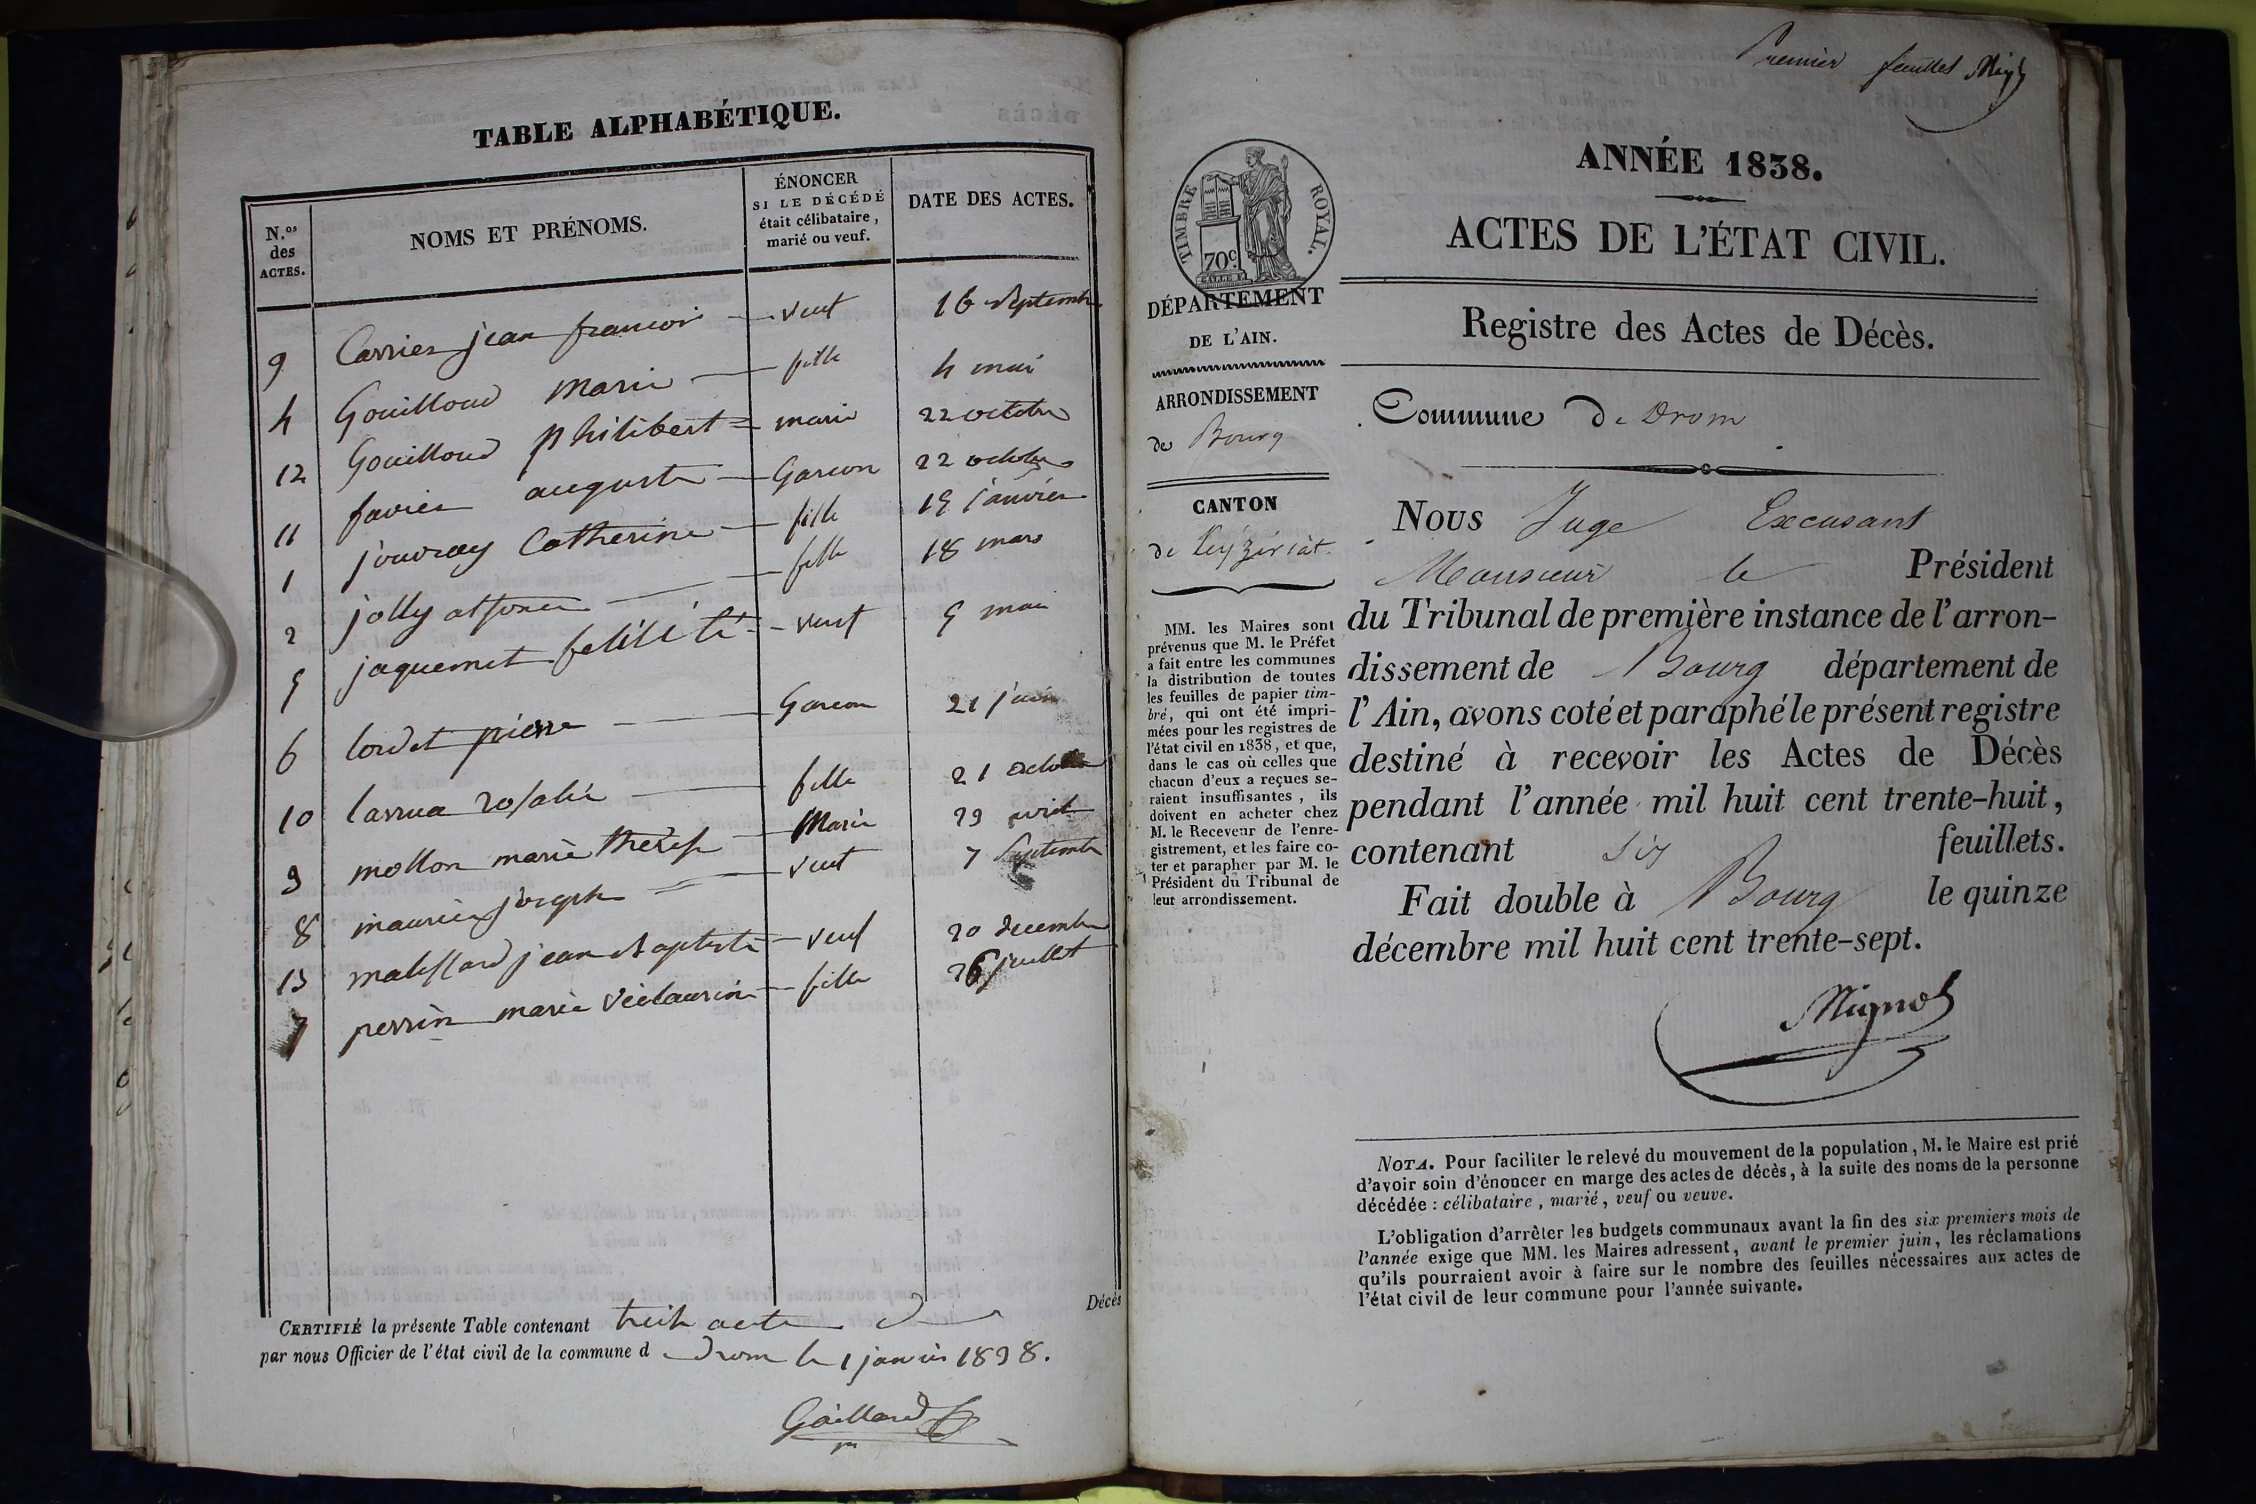 TABLE ALPHABÉTIQUE.
N.os
des
ACTES.
NOMS ET PRÉNOMS.
ÉNONCER
SI LE DÉCÉDÉ
était célibataire,
marié ou veuf.
DATE DES ACTES.
9 Carrier jean francois veuf 16 septembre
4 Gouilloud marie fille 4 mai
12 Gouilloud philibert marié 22 octobre
11 favier auguste Garcon 22 octobre
1 jouvray Catherine fille 15 janvier
2 jolly fille 18 mars
5 jaquemet felicité 5 mai
6 pierre Garcon 21 juin
10 larrua rosalie fille 21 octobre
3 mollon marie therese Marié 29 avril
8 maurier joseph veuf 7 septembre
13 jean baptiste veuf 20 decembre
7 perrin marie fille 26 juillet
Décès
CERTIFIÉ la présente Table contenant treize actes
par nous Officier de l'état civil de la commune d Drom le 1 janvier 1838.
Gaillard
Premier feuillet
TIMBRE ROYAL.
70c.
DÉPARTEMENT
DE L'AIN.
ARRONDISSEMENT
de Bourg
CANTON
de Ceyzériat
MM. les Maires sont
prévenus que M. le Préfet
a fait entre les communes
la distribution de toutes
les feuilles de papier tim-
bré, qui ont été impri-
mées pour les registres de
l'état civil en 1838, et que,
dans le cas où celles que
chacun d'eux a reçues se-
raient insuffisantes, ils
doivent en acheter chez
M. le Receveur de l'enre-
gistrement, et les faire co-
ter et parapher par M. le
Président du Tribunal de
leur arrondissement.
ANNÉE 1838.
ACTES DE L'ÉTAT CIVIL.
Registre des Actes de Décès.
Commune de Drom
NOUS Juge Excusant
Monsieur le Président
du Tribunal de première instance de l'arron-
dissement de Bourg département de
l'Ain, avons coté et paraphé le présent registre
destiné à recevoir les Actes de Décès
pendant l'année mil huit cent trente-huit,
contenant six feuillets.
Fait double à Bourg le quinze
décembre mil huit cent trente-sept.
Mignot
NOTA. Pour faciliter le relevé du mouvement de la population, M. le Maire est prié
d'avoir soin d'énoncer en marge des actes de décès, à la suite des noms de la personne
décédée : célibataire, marié, veuf ou veuve.
L'obligation d'arrêter les budgets communaux avant la fin des six premiers mois de
l'année exige que MM. les Maires adressent, avant le premier juin, les réclamations
qu'ils pourraient avoir à faire sur le nombre des feuilles nécessaires aux actes de
l'état civil de leur commune pour l'année suivante.